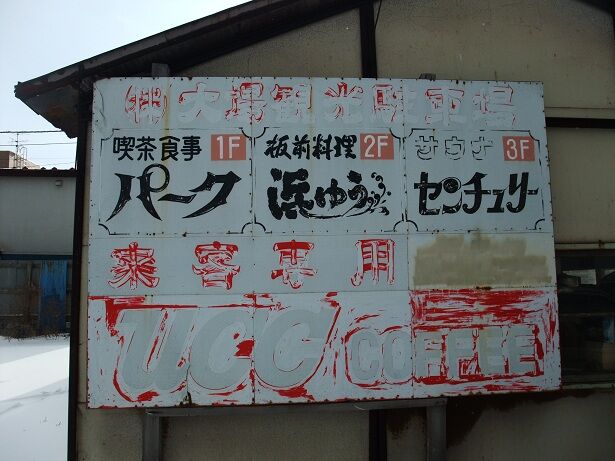 ㈱大陽観光駐車場
喫茶食事 1F
パーク
板前料理 2F
浜ゆう
サウナ 3F
センチュリー
来客専用
UCC COFFEE